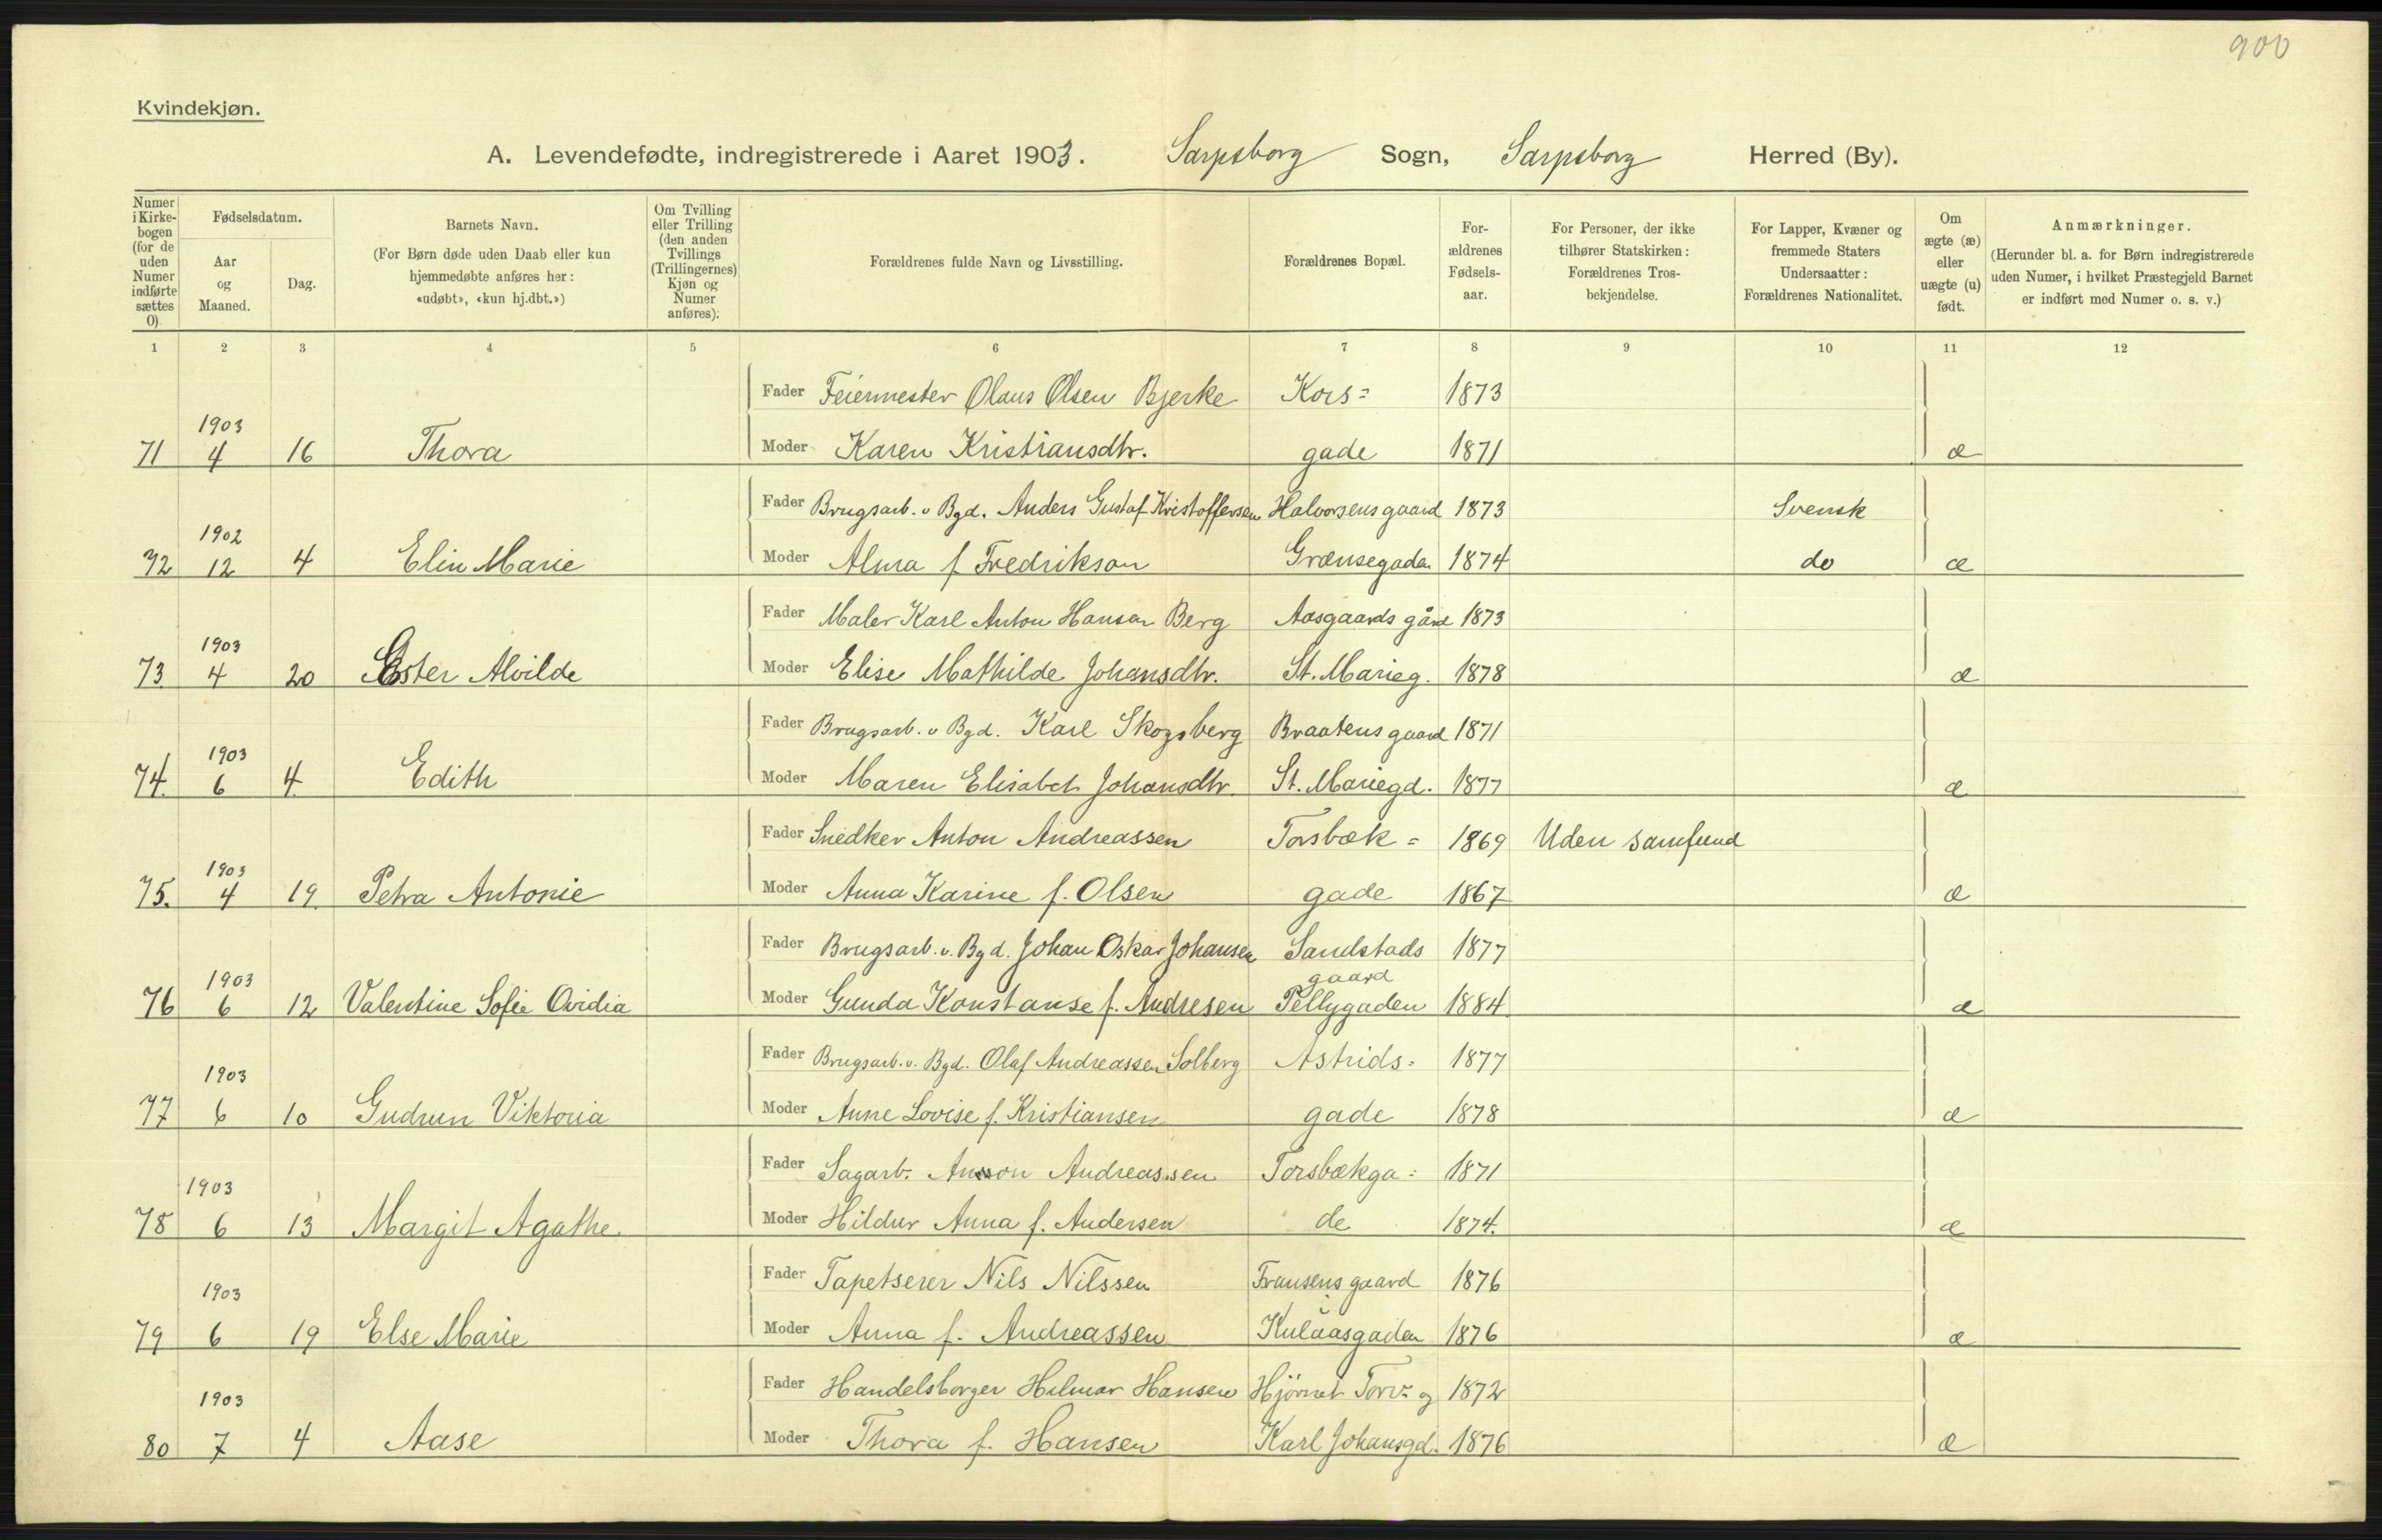 900
Kvindekjøn.
A. Levendefødte, indregistrerede i Aaret 1903. Sarpsborg Sogn, Sarpsborg Herred (By).
Numer i Kirkebogen (for de uden Numer indførte sættes 0)
Fødselsdatum.
Aar og Maaned.
Dag.
Barnets Navn.
(For Børn døde uden Daab eller kun hjemmedøbte anføres her: «udøbt», «kun hj.dbt.»)
Om Tvilling eller Trilling (den anden Tvillings (Trillingernes) Kjøn og Numer anføres).
Forældrenes fulde Navn og Livsstilling.
Forældrenes Bopæl.
Forældrenes Fødselsaar.
For Personer, der ikke tilhører Statskirken: Forældrenes Trosbekjendelse.
For Lapper, Kvæner og fremmede Staters Undersaatter: Forældrenes Nationalitet.
Om ægte (æ) eller uægte (u) født.
Anmærkninger.
(Herunder bl. a. for Børn indregistrerede uden Numer, i hvilket Præstegjeld Barnet er indført med Numer o. s. v.)
1 2 3 4 5 6 7 8 9 10 11 12
Fader Feiermester Olaus Olsen Bjerke Kors= 1873
1903
71 4 16 Thora Moder Karen Kristiansdtr. gade 1871 æ
Fader Brugsarb. v Bgd. Anders Gustaf Kristoffersen Halvorsensgaard 1873 Svensk
1902
72 12 4 Elin Marie Moder Alma f Fredrikson Grænsegaden 1874 do æ
Fader Maler Karl Anton Hansen Berg Aasgaards gård 1873
1903
73 4 20 Ester Alvilde Moder Elise Mathilde Johansdtr. St. Marieg. 1878 æ
Fader Brugsarb. v Bgd. Karl Skogsberg Braatens gaard 1871
1903
74. 6 4. Edith Moder Maren Elisabet Johansdtr. St. Mariegd. 1877 æ
Fader Snedker Anton Andreassen Torsbæk = 1869 Uden samfund
1903
75. 4 19. Petra Antonie Moder Anna Karine f. Olsen gade 1867 æ
Fader Brugsarb. v. Bgd. Johan Oskar Johansen Sandstads 1877
1903 gaard
76 6 12 Valentine Sofie Ovidia Moder Gunda Konstanse f. Andresen Pellygaden 1884 æ
Fader Brugsarb. v. Bgd. Olaf Andreassen Solberg Astrids= 1877
1903
77 6 10 Gudrun Viktoria Moder Anne Lovise f. Kristiansen gade 1878 æ
Fader Sagarb. Andreassen Torsbækga= 1871
1903
78 6 13 Margit Agathe Moder Hildur Anna f. Andersen de 1874. æ
Fader Tapetserer Nils Nilssen Fransens gaard 1876
1903
79 6 19 Else Marie Moder Anna f. Andreassen Kulaasgaden 1876 æ
Fader Handelsborger Hilmar Hansen Hjørnet Torv- og 1872
1903
80 7 4 Aase Moder Thora f. Hansen Karl Johansgd. 1876 æ